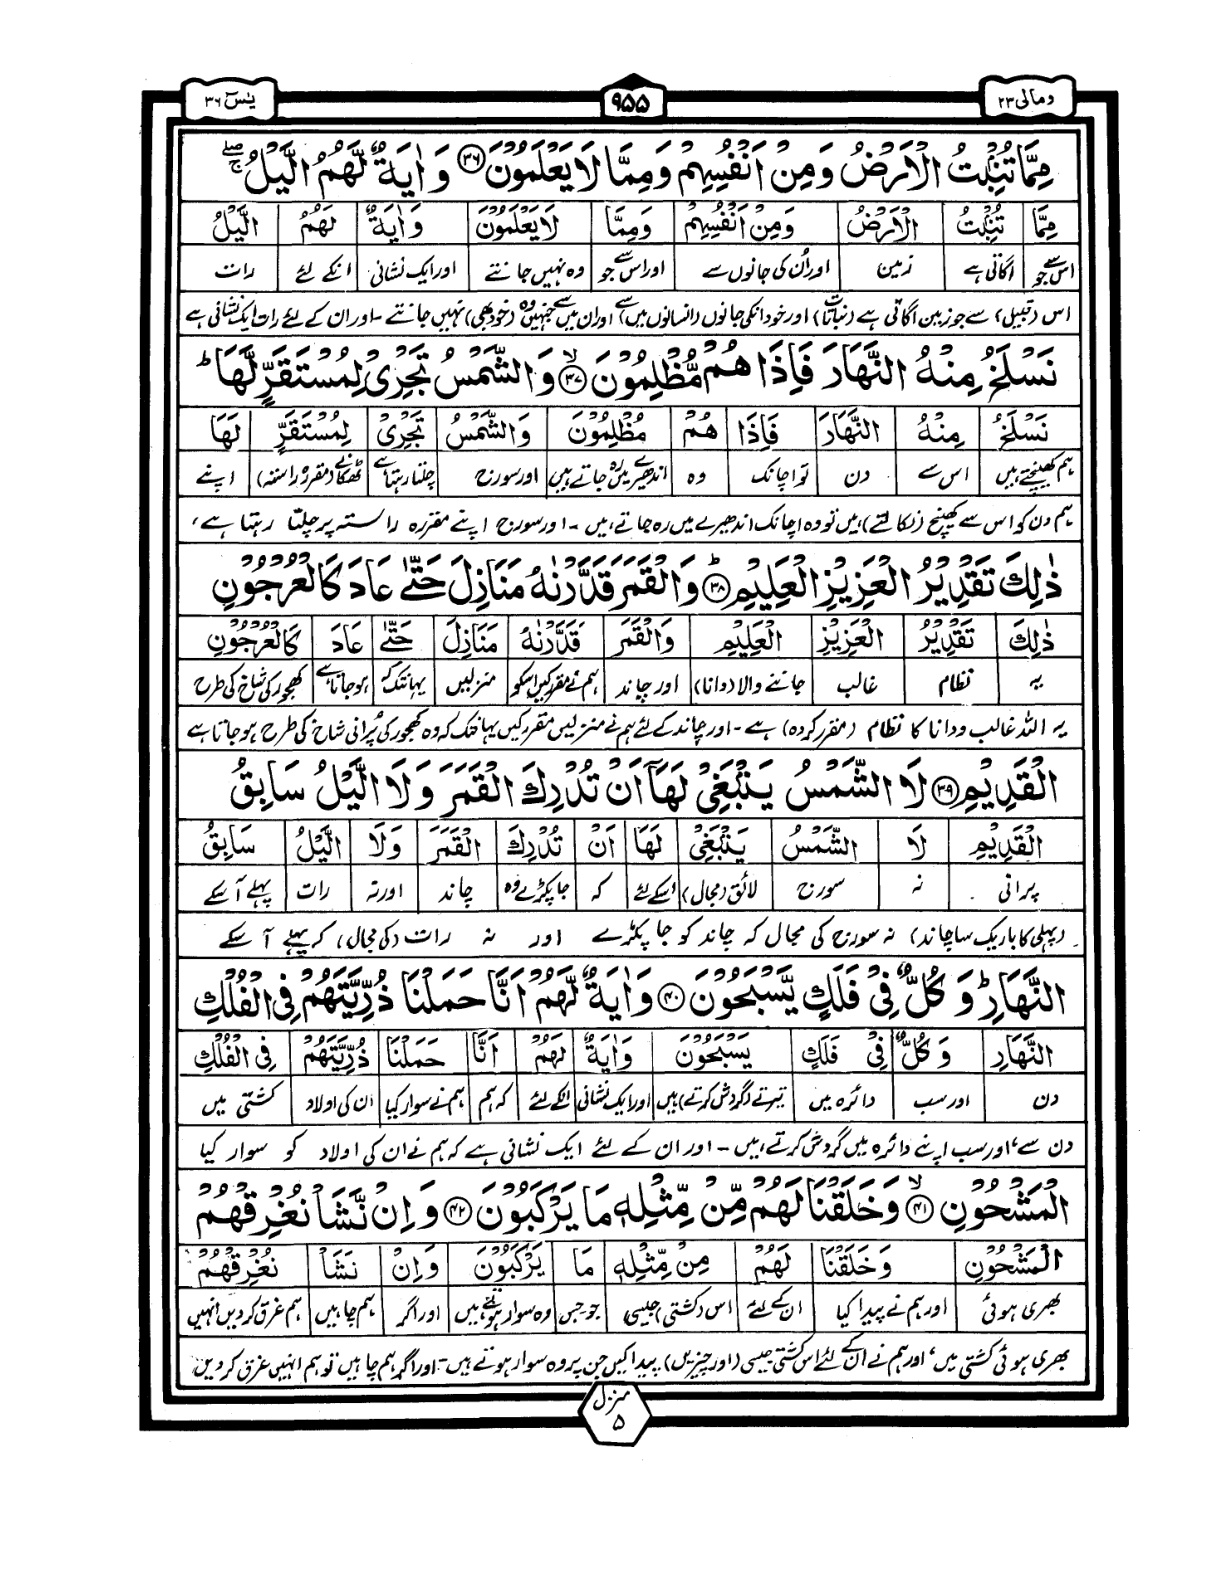 یٰسٓ ۳۶
۹۵۵
ومالی ۲۳
مِمَّا تُنْۢبِتُ الْاَرْضُ وَمِنْ اَنْفُسِهِمْ وَمِمَّا لَا يَعْلَمُوْنَ ۝۳۶ وَاٰيَةٌ لَّهُمُ الَّيْلُ ۖۚ
مِمَّا تُنْۢبِتُ الْاَرْضُ وَمِنْ اَنْفُسِهِمْ وَمِمَّا لَا يَعْلَمُوْنَ وَاٰيَةٌ لَهُمُ الَّيْلُ
اس سے جو اگاتی ہے زمین اور اُن کی جانوں سے اور اس سے جو وہ نہیں جانتے اور ایک نشانی انکے لئے رات
اس (قبیل) سے جو زمین اگاتی ہے (نباتات) اور خود انکی جانوں (انسانوں میں) سے اور ان میں سے جنہیں وہ (خود بھی) نہیں جانتے ۔ اور ان کے لئے رات ایک نشانی ہے
نَسْلَخُ مِنْهُ النَّهَارَ فَاِذَا هُمْ مُّظْلِمُوْنَ ۝۳۷ وَالشَّمْسُ تَجْرِيْ لِمُسْتَقَرٍّ لَّهَا ؕ
نَسْلَخُ مِنْهُ النَّهَارَ فَاِذَا هُمْ مُظْلِمُوْنَ وَالشَّمْسُ تَجْرِيْ لِمُسْتَقَرٍّ لَهَا
ہم کھینچتے ہیں اس سے دن تو اچانک وہ اندھیرے میں رہ جاتے ہیں اور سورج چلتا رہتا ہے ٹھکانے (مقررہ راستہ) اپنے
ہم دن کو اس سے کھینچ (نکالتے) ہیں تو وہ اچانک اندھیرے میں رہ جاتے ہیں ۔ اور سورج اپنے مقررہ راستہ پر چلتا رہتا ہے،
ذٰلِكَ تَقْدِيْرُ الْعَزِيْزِ الْعَلِيْمِ ۝۳۸ وَالْقَمَرَ قَدَّرْنٰهُ مَنَازِلَ حَتّٰى عَادَ كَالْعُرْجُوْنِ
ذٰلِكَ تَقْدِيْرُ الْعَزِيْزِ الْعَلِيْمِ وَالْقَمَرَ قَدَّرْنٰهُ مَنَازِلَ حَتّٰى عَادَ كَالْعُرْجُوْنِ
یہ نظام غالب جاننے والا (دانا) اور چاند ہم نے مقرر کیں اسکو منزلیں یہانتک کہ ہو جاتا ہے کھجور کی شاخ کی طرح
یہ اللہ غالب و دانا کا نظام (مقرر کردہ) ہے ۔ اور چاند کے لئے ہم نے منزلیں مقرر کیں یہانتک کہ وہ کھجور کی پُرانی شاخ کی طرح ہو جاتا ہے
الْقَدِيْمِ ۝۳۹ لَا الشَّمْسُ يَنْۢبَغِيْ لَهَاۤ اَنْ تُدْرِكَ الْقَمَرَ وَلَا الَّيْلُ سَابِقُ
الْقَدِيْمِ لَا الشَّمْسُ يَنْۢبَغِيْ لَهَا اَنْ تُدْرِكَ الْقَمَرَ وَلَا الَّيْلُ سَابِقُ
پرانی نہ سورج لائق (مجال) اسکے لئے کہ جا پکڑے وہ چاند اور نہ رات پہلے آ سکے
(پہلی کا باریک سا چاند) نہ سورج کی مجال کہ چاند کو جا پکڑے اور نہ رات (کی مجال) کہ پہلے آ سکے
النَّهَارِ ؕ وَكُلٌّ فِيْ فَلَكٍ يَّسْبَحُوْنَ ۝۴۰ وَاٰيَةٌ لَّهُمْ اَنَّا حَمَلْنَا ذُرِّيَّتَهُمْ فِي الْفُلْكِ
النَّهَارِ وَكُلٌّ فِيْ فَلَكٍ يَسْبَحُوْنَ وَاٰيَةٌ لَهُمْ اَنَّا حَمَلْنَا ذُرِّيَّتَهُمْ فِي الْفُلْكِ
دن اور سب دائرہ میں تیرتے (گردش کرتے) ہیں اور ایک نشانی انکے لئے کہ ہم ہم نے سوار کیا ان کی اولاد کشتی میں
دن سے، اور سب اپنے دائرہ میں گردش کرتے ہیں ۔ اور ان کے لئے ایک نشانی ہے کہ ہم نے ان کی اولاد کو سوار کیا
الْمَشْحُوْنِ ۝۴۱ وَخَلَقْنَا لَهُمْ مِّنْ مِّثْلِهٖ مَا يَرْكَبُوْنَ ۝۴۲ وَاِنْ نَّشَاْ نُغْرِقْهُمْ
الْمَشْحُوْنِ وَخَلَقْنَا لَهُمْ مِنْ مِّثْلِهٖ مَا يَرْكَبُوْنَ وَاِنْ نَشَاْ نُغْرِقْهُمْ
بھری ہوئی اور ہم نے پیدا کیا ان کے لئے اس (کشتی) جیسی جو۔جس وہ سوار ہوتے ہیں اور اگر ہم چاہیں ہم غرق کر دیں انہیں
بھری ہوئی کشتی میں، اور ہم نے ان کے لئے اس کشتی جیسی (اور چیزیں) پیدا کیں جن پر وہ سوار ہوتے ہیں ۔ اور اگر ہم چاہیں تو ہم انہیں غرق کر دیں
منزل ۵